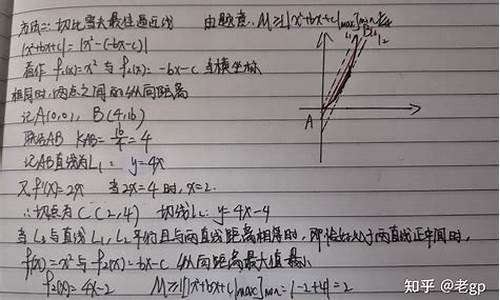 方法二:切比雪夫最佳逼近线 由题意,M≥[|x²+bx+c|max]min
|x²+bx+c|=|x²-(-bx-c)|
看作 f₁(x)=x² 与 f₂(x)=-bx-c 当横坐标
相同时,两点之间的纵向距离
记A(0,0), B(4,16)
联结AB KAB=16/4=4
记AB直线为L₁: y=4x
又f'(x)=2x 当2x=4时,x=2.
∴切点为C(2,4) 切线L₂: y=4x-4
当L₃与直线L₁,L₂平行且与两直线距离相等时,即恰好处于两直线正中间时,
f₁(x)=x²与f₂(x)=-bx-c 纵向距离最大值最小
f₂(x)=4x-2 M≥[|x²+bx+c|max]min=|-2+4|=2
A
B
L₁
L₂
知乎 @老gp